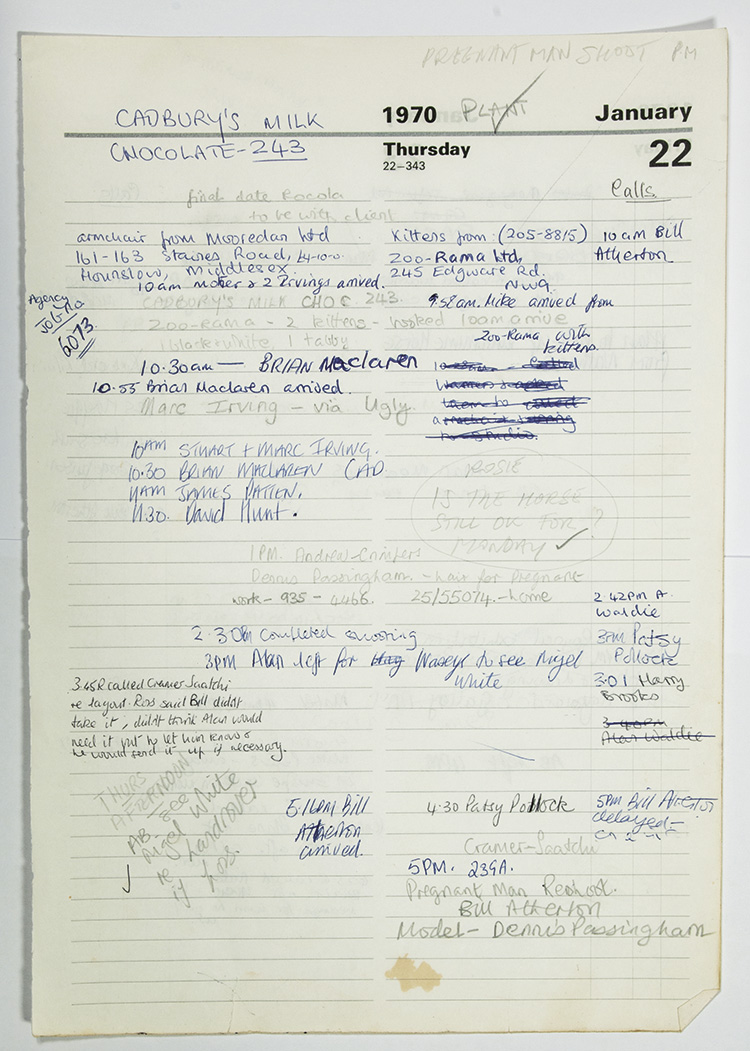 PREGNANT MAN SHOOT PM
CADBURY'S MILK
CHOCOLATE - 243
1970 PLANT January
Thursday 22
22-343
Calls.
final date Rocola
to be with client
armchair from Mooredan Ltd
161-163 Staines Road, 14-10-0.
Hounslow, Middlesex.
10am Mother & 2 Irvings arrived.
Agency
Job No
6073
CADBURY'S MILK CHOC 243.
Zoo-Rama - 2 kittens - booked 10am arrive
1 black & white, 1 tabby
Kittens from: (205-8815)
Zoo-Rama Ltd,
245 Edgware Rd.
NW9.
9.58am. Mike arrived from
Zoo-Rama with
kittens.
10am Bill
Atherton
10.30am — BRIAN Maclaren
10.55 Brian Maclaren arrived.
Marc Irving - via Ugly.
them to
armchair
to studio.
10AM STUART + MARC IRVING.
10.30 BRIAN MACLAREN CAD
11AM JAMES PATTEN.
11.30. David Hunt.
ROSIE
IS THE HORSE
STILL OK FOR ?
MANDAY ✓
1PM. Andrew-Crimpers
Dennis Passingham. - hair for Pregnant
work - 935 - 4466. 25/55074. - home
2.30pm completed shooting
3pm Alan left for Waseys to see Nigel
White
2.42pm A.
Waldie
3pm Patsy
Pollock
3.01 Harry
Brooks
3.40pm
Alan Waldie
3.45 R called Cramer Saatchi
re layout. Ross said Bill didn't
take it, didn't think Alan would
need it but to let him know &
he would send it up if necessary.
THURS
AFTERNOON
AB - see
Nigel White
re handover
if hos.
5.16pm Bill
Atherton
arrived.
4.30 Patsy Pollock
5PM Bill Atherton
delayed -
Cramer-Saatchi
5PM. 239A.
Pregnant Man Reshoot.
Bill Atherton
Model - Dennis Passingham